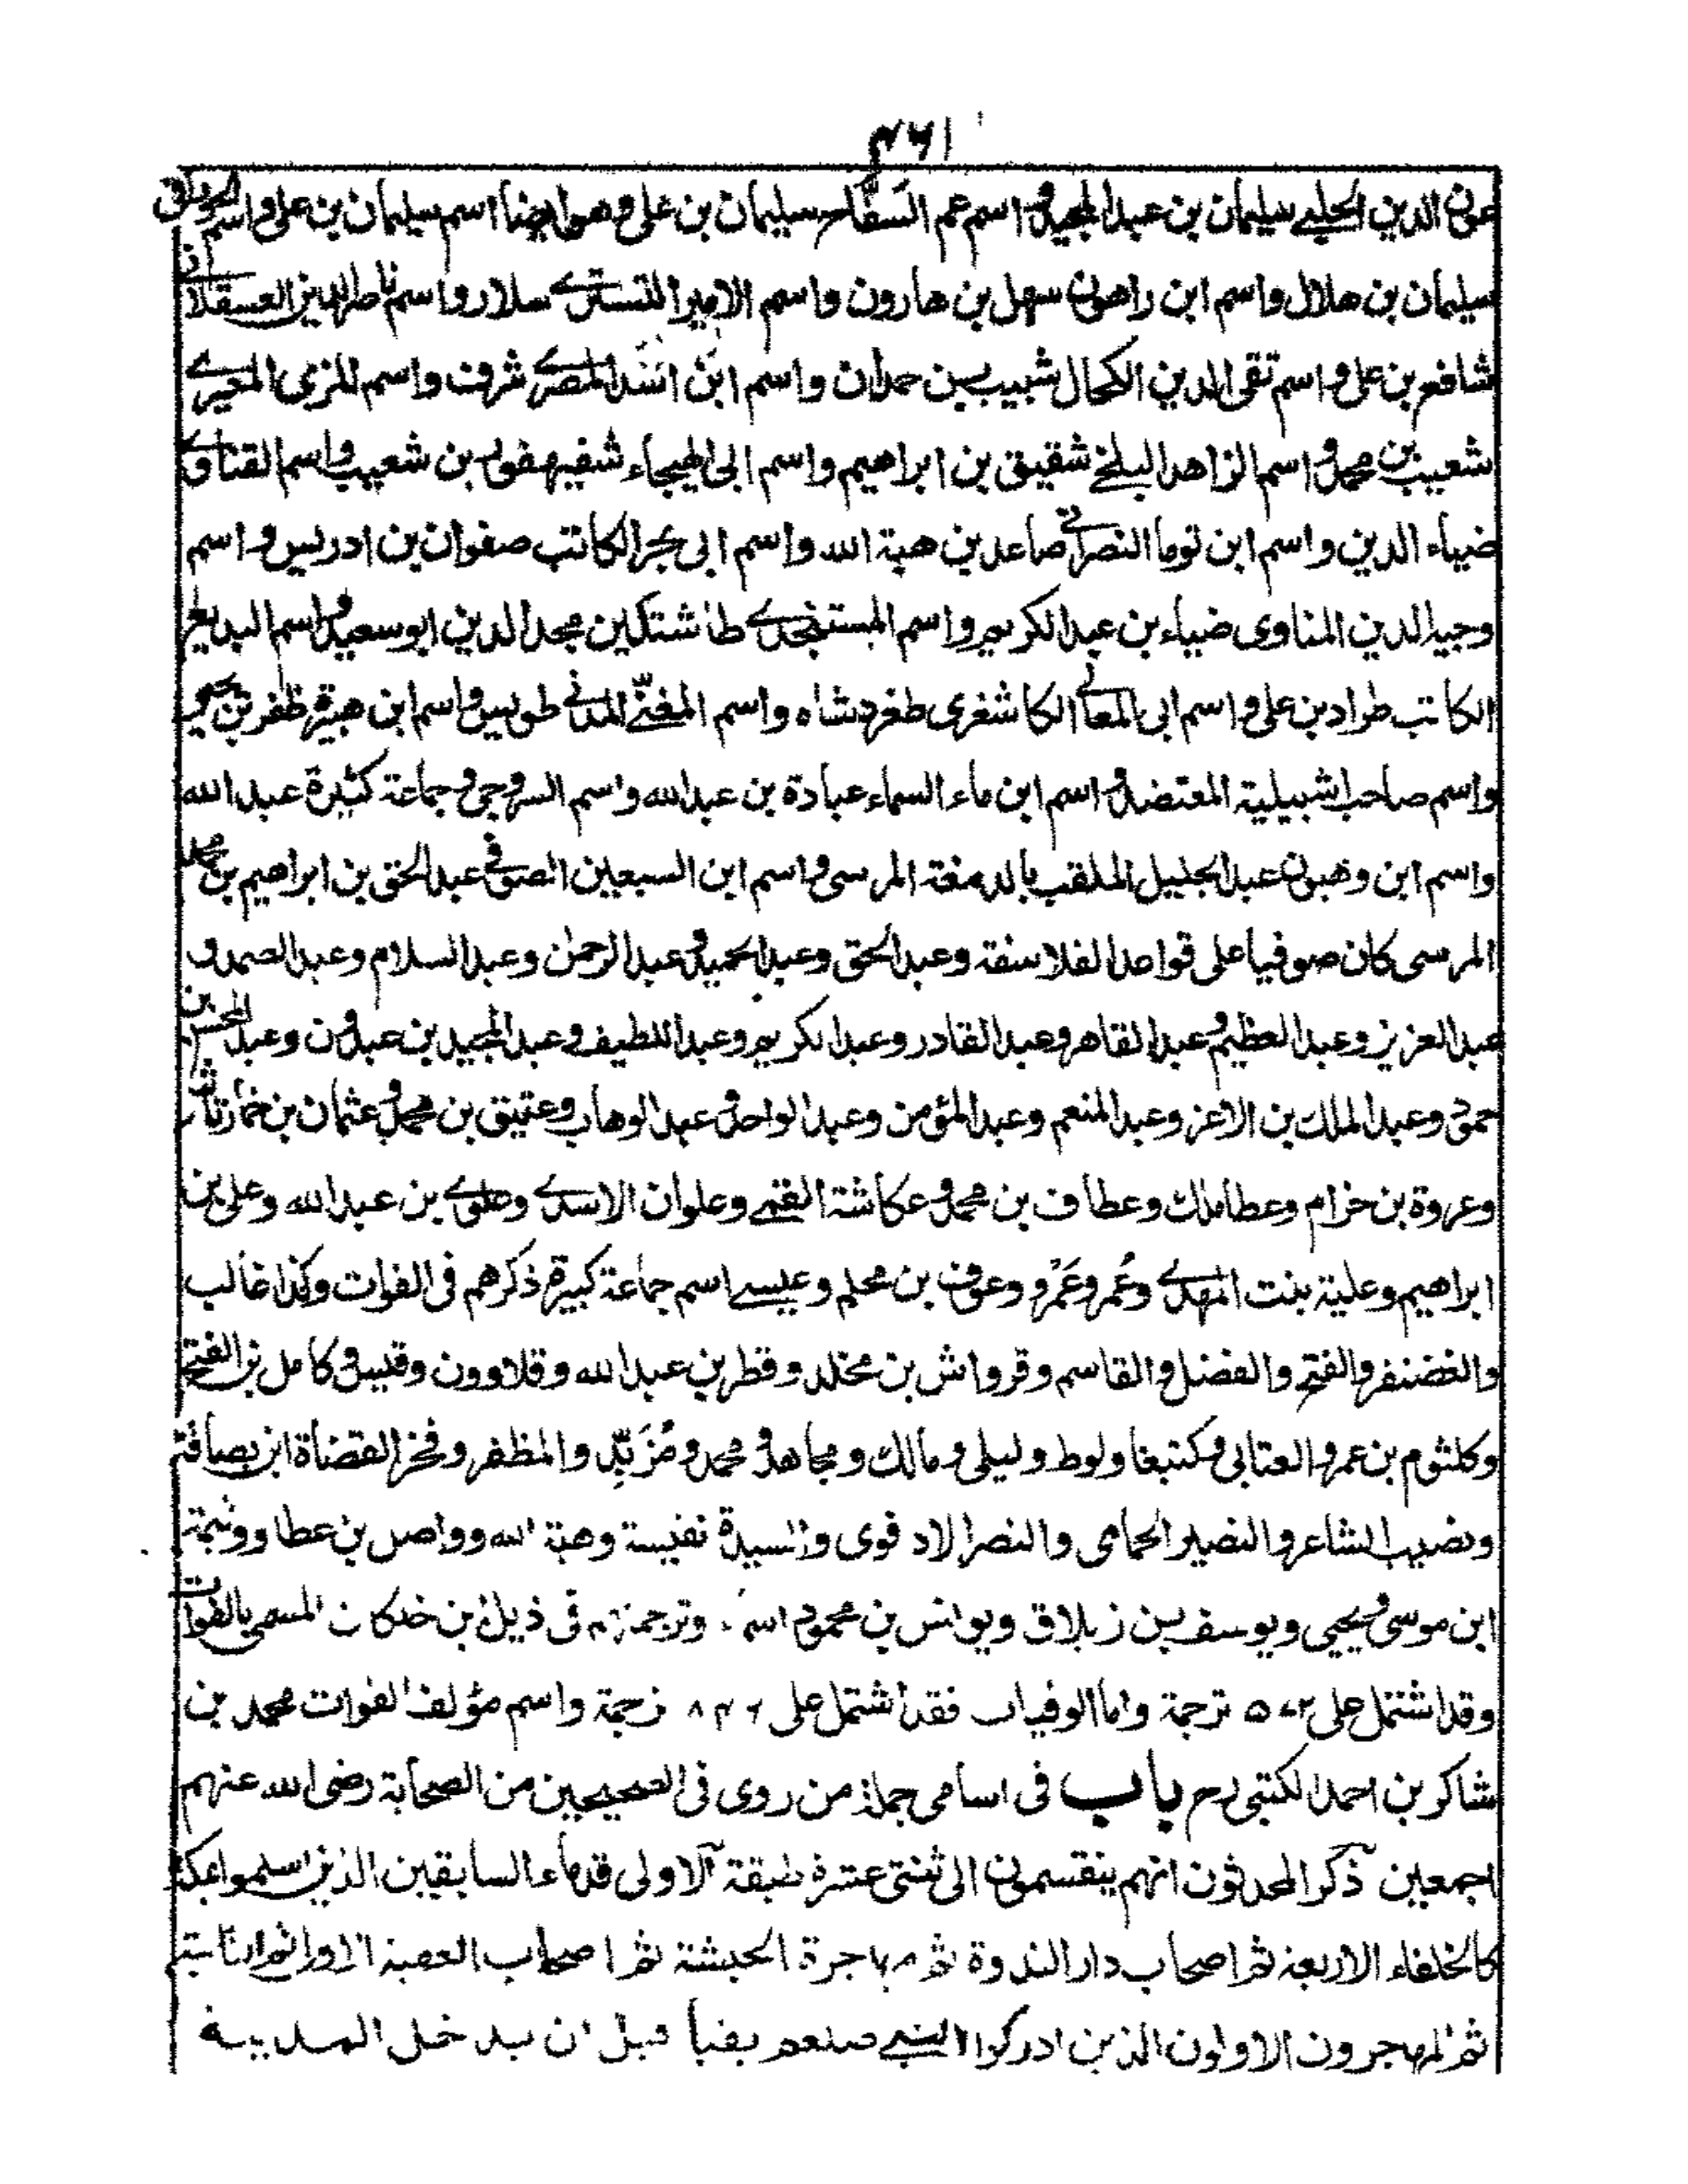 ٤٦١
عون الدين الحلبي سليمان بن عبد المجيد واسم عم السفاح سليمان بن على وهو ايضا اسم سليمان بن على واسم
سليمان بن هلال واسم ابن راهون سهل بن هارون واسم الامير التسترى سلار واسم ناصر الدين العسقلانى
شافع بن على واسم تقى الدين الكحال شبيب بن حمدان واسم ابن اسَد المصرى شرف واسم المزى
شعيب بن محمد واسم الزاهد البلخى شقيق بن ابراهيم واسم ابى الهيجاء شفيهفون بن شعيب واسم القناوى
ضياء الدين واسم ابن توما النصرانى صاعد بن هبة الله واسم ابى بحر الكاتب صفوان بن ادريس واسم
وجيه الدين المناوى ضياء بن عبد الكريم واسم المستنجدى طاشتكين مجد الدين ابو سعيد واسم البديع
الكاتب طراد بن على واسم ابى المعالى الكاشغرى طغردشاه واسم المغنّى المدنى طويس واسم ابن هبيرة ظفر بن يحيى
واسم صاحب اشبيلية المعتضد واسم ابن ماء السماء عبادة بن عبد الله واسم السروجى وجماعة كثيرة عبد الله
واسم ابن وهبون عبد الجليل الملقب بالدمغة المرسى واسم ابن السبعين الصوفى عبد الحق بن ابراهيم بن محمد
المرسى كان صوفيا على قواعد الفلاسفة وعبد الحق وعبد الحميد وعبد الرحمن وعبد السلام وعبد الصمد و
عبد العزيز وعبد العظيم وعبد القاهر وعبد القادر وعبد الكريم وعبد اللطيف وعبد المجيد بن عبدون وعبد المحسن بن
حمود وعبد الملك بن الاعز وعبد المنعم وعبد المؤمن وعبد الواحد وعبد الوهاب وعتيق بن محمد وعثمان بن خمارتاش
وعروة بن حزام وعطا ملك وعطاف بن محمد وعكاشة القمى وعلوان الاسدى وعلوى بن عبد الله وعلى بن
ابراهيم وعلية بنت المهدى وعُمر وعَمْرو وعوف بن محلم وعيسى اسم جماعة كبيرة ذكرهم فى الفوات وكذا غالب
والغضنفر والفتح والفضل والقاسم وقرواش بن مخلد وقطر بن عبد الله وقلاوون وقيس وكامل بن الفتح
وكلثوم بن عمرو العتابى وكتبغا ولوط وليلى ومالك ومجاهد ومحمد ومُزَبِّد والمظفر وفخر القضاة ابن بصاقة
ونصيب الشاعر والنصير الحمامى والنصر الادفوى والسيدة نفيسة وهبة الله وواصل بن عطا ووثيمة
ابن موسى ويحيى ويوسف بن زيلاق ويونس بن محمود اسماء وترجمتهم فى ذيل ابن خلكان المسمى بالفوات
وقد اشتمل على ٥٧٢ ترجمة واما الوفيات فقد اشتمل على ٨٣٦ ترجمة واسم مؤلف الفوات محمد بن
شاكر بن احمد الكتبى رح باب فى اسامى جملة من روى فى الصحيحين من الصحابة رضى الله عنهم
اجمعين ذكر المحدثون انهم ينقسمون الى ثنتى عشرة طبقة الاولى قدماء السابقين الذين اسلموا بمكة
كالخلفاء الاربعة ثم اصحاب دار الندوة ثم مهاجرة الحبشة ثم اصحاب العقبة الاولى ثم الثانية
ثم المهاجرون الاولون الذين ادركوا النبى صلعم بقبا قبل ان يدخل المدينة